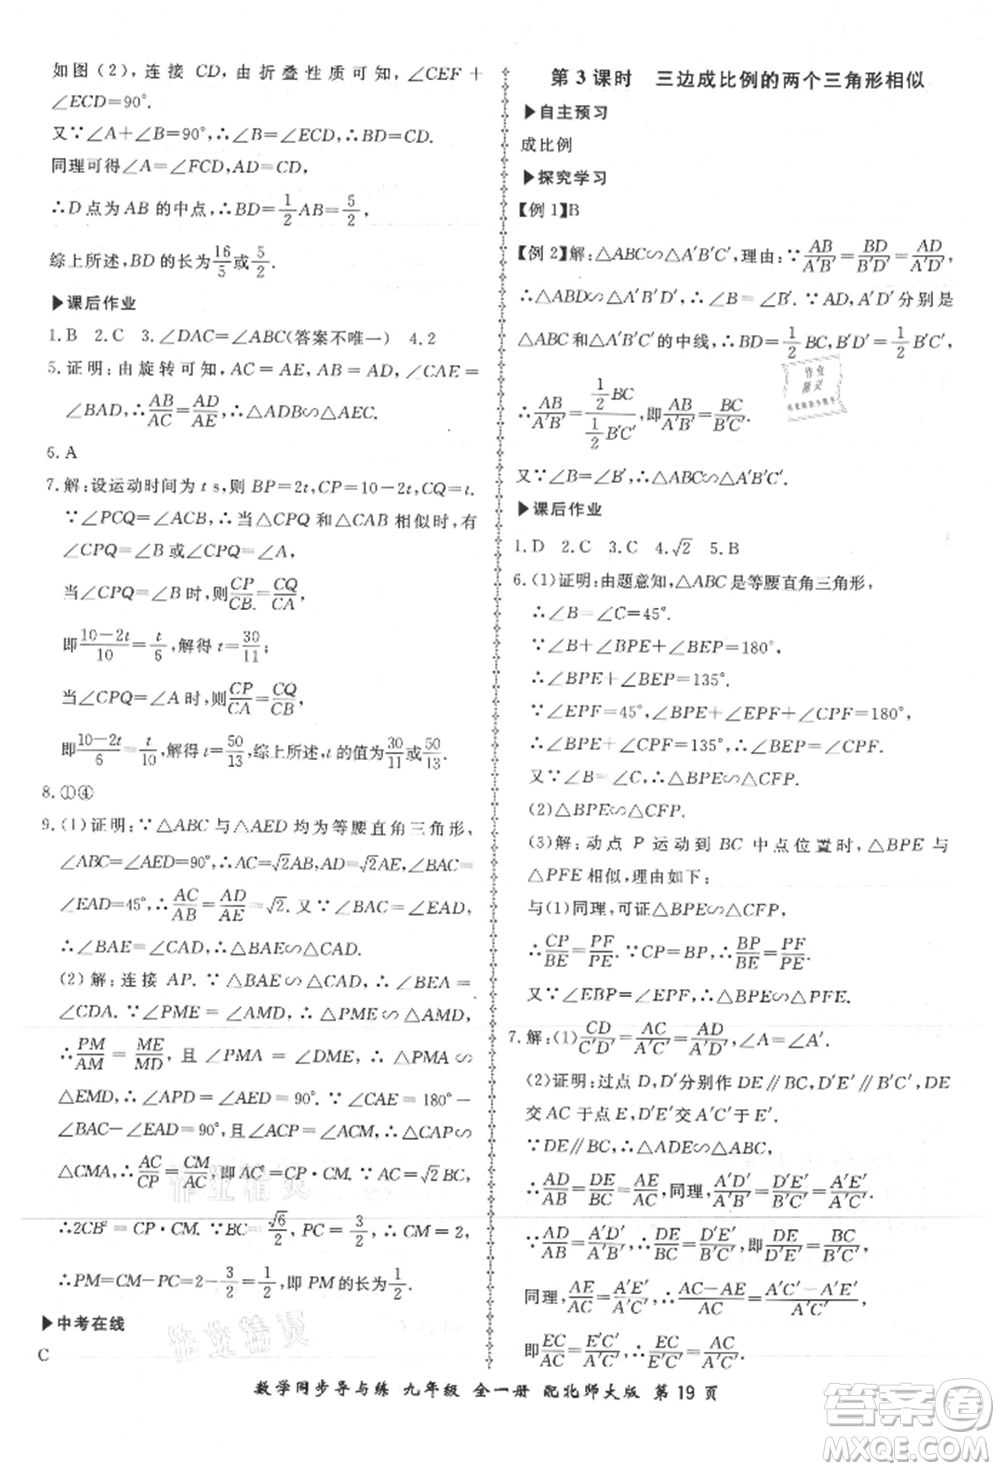 如图(2),连接 CD,由折叠性质可知,∠CEF+
∠ECD=90°.
又∵∠A+∠B=90°,∴∠B=∠ECD,∴BD=CD.
同理可得∠A=∠FCD,AD=CD.
∴D 点为 AB 的中点,∴BD=1/2AB=5/2,
综上所述,BD 的长为16/5或5/2.
▶课后作业
1.B 2.C 3.∠DAC=∠ABC(答案不唯一) 4.2
5.证明:由旋转可知,AC=AE,AB=AD,∠CAE=
∠BAD,∴AB/AC=AD/AE,∴△ABD∽△ACE.
6.A
7.解:设运动时间为 t s,则 BP=2t,CP=10-2t,CQ=t.
∵∠PCQ=∠ACB,∴当△CPQ和△CAB 相似时,有
∠CPQ=∠B或∠CPQ=∠A.
当∠CPQ=∠B时,则CP/CB=CQ/CA,
即10-2t/10=t/6,解得 t=30/11;
当∠CPQ=∠A时,则有CP/CA=CQ/CB,
即10-2t/6=t/10,解得 t=50/13,综上所述,t 的值为30/11或50/13.
8.①④
9.(1)证明:∵△ABC 与△AED 均为等腰直角三角形,
∠ABC=∠AED=90°,∴AC=√2AB,AD=√2AE,
∠EAD=45°,∴AC/AB=AD/AE=√2.又∵∠BAC=∠EAD,
∴∠BAE=∠CAD,∴△BAE∽△CAD.
(2)解:连接 AP.∵△BAE∽△CAD,∴∠BEA=
∠CDA.∵∠PME=∠AMD,∴△PME∽△AMD,
∴PM/AM=ME/MD.∵∠PMA=∠EMD,∴△PMA∽
△EMD,∴∠APM=∠AED=90°.∵∠CAE=180°-
∠BAC-∠EAD=90°,且∠ACP=∠MCA,∴△CAP∽
△CMA,∴AC/CP=CM/AC,∴AC²=CP·CM.∵AC=√2BC,
∴2CB²=CP·CM.∵BC=√6/2,PC=3/2,∴CM=2,
∴PM=CM-PC=2-3/2=1/2,即 PM的长为1/2.
▶中考在线
C
第 3 课时 三边成比例的两个三角形相似
▶自主预习
成比例
▶探究学习
【例 1】B
【例 2】解:△ABC∽△A′B′C′,理由:∵AB/A′B′=BD/B′D′=AD/A′D′,
∴△ABD∽△A′B′D′,∴∠B=∠B′,∵AD、A′D′分别是
△ABC和△A′B′C′的中线,∴BD=1/2BC,B′D′=1/2B′C′,
∴AB/A′B′=1/2BC/1/2B′C′,即AB/A′B′=BC/B′C′,
又∵∠B=∠B′,∴△ABC∽△A′B′C′.
▶课后作业
1.D 2.C 3.C 4.√2 5.B
6.(1)证明:由题意知,△ABC是等腰直角三角形,
∴∠B=∠C=45°.
∵∠B+∠BPE+∠BEP=180°,
∴∠BPE+∠BEP=135°.
∵∠EPF=45°,∠BPE+∠EPF+∠CPF=180°,
∴∠BPE+∠CPF=135°,∴∠BEP=∠CPF.
又∵∠B=∠C,∴△BPE∽△CFP.
(2)△BPE∽△CFP.
(3)解:动点 P 运动到 BC 中点位置时,△BPE 与
△PFE 相似,理由如下:
与(1)同理,可证△BPE∽△CFP,
∴CP/BE=PF/PE,∵CP=BP,∴BP/BE=PF/PE,
又∵∠EBP=∠EPF,∴△BPE∽△PFE.
7.解:(1)CD/C′D′=AC/A′C′=AD/A′D′,∠A=∠A′.
(2)证明:过点 D,D′分别作 DE∥BC,D′E′∥B′C′,DE
交 AC 于点 E,D′E′交 A′C′于点 E′.
∵DE∥BC,∴△ADE∽△ABC,
∴AD/AB=DE/BC=AE/AC,同理,A′D′/A′B′=D′E′/B′C′=A′E′/A′C′.
∵AD/AB=A′D′/A′B′,∴DE/BC=D′E′/B′C′,即DE/D′E′=BC/B′C′,
同理,AE/A′E′=AC/A′C′,∴AC-AE/A′C′-A′E′=AC/A′C′,
即EC/E′C′=AC/A′C′,∴EC/E′C′=AC/A′C′=BC/B′C′,
数学同步导与练 九年级 全一册 配北师大版 第 19 页
作业精灵
作业精灵
作业
精灵
答案圈
MXQE.COM